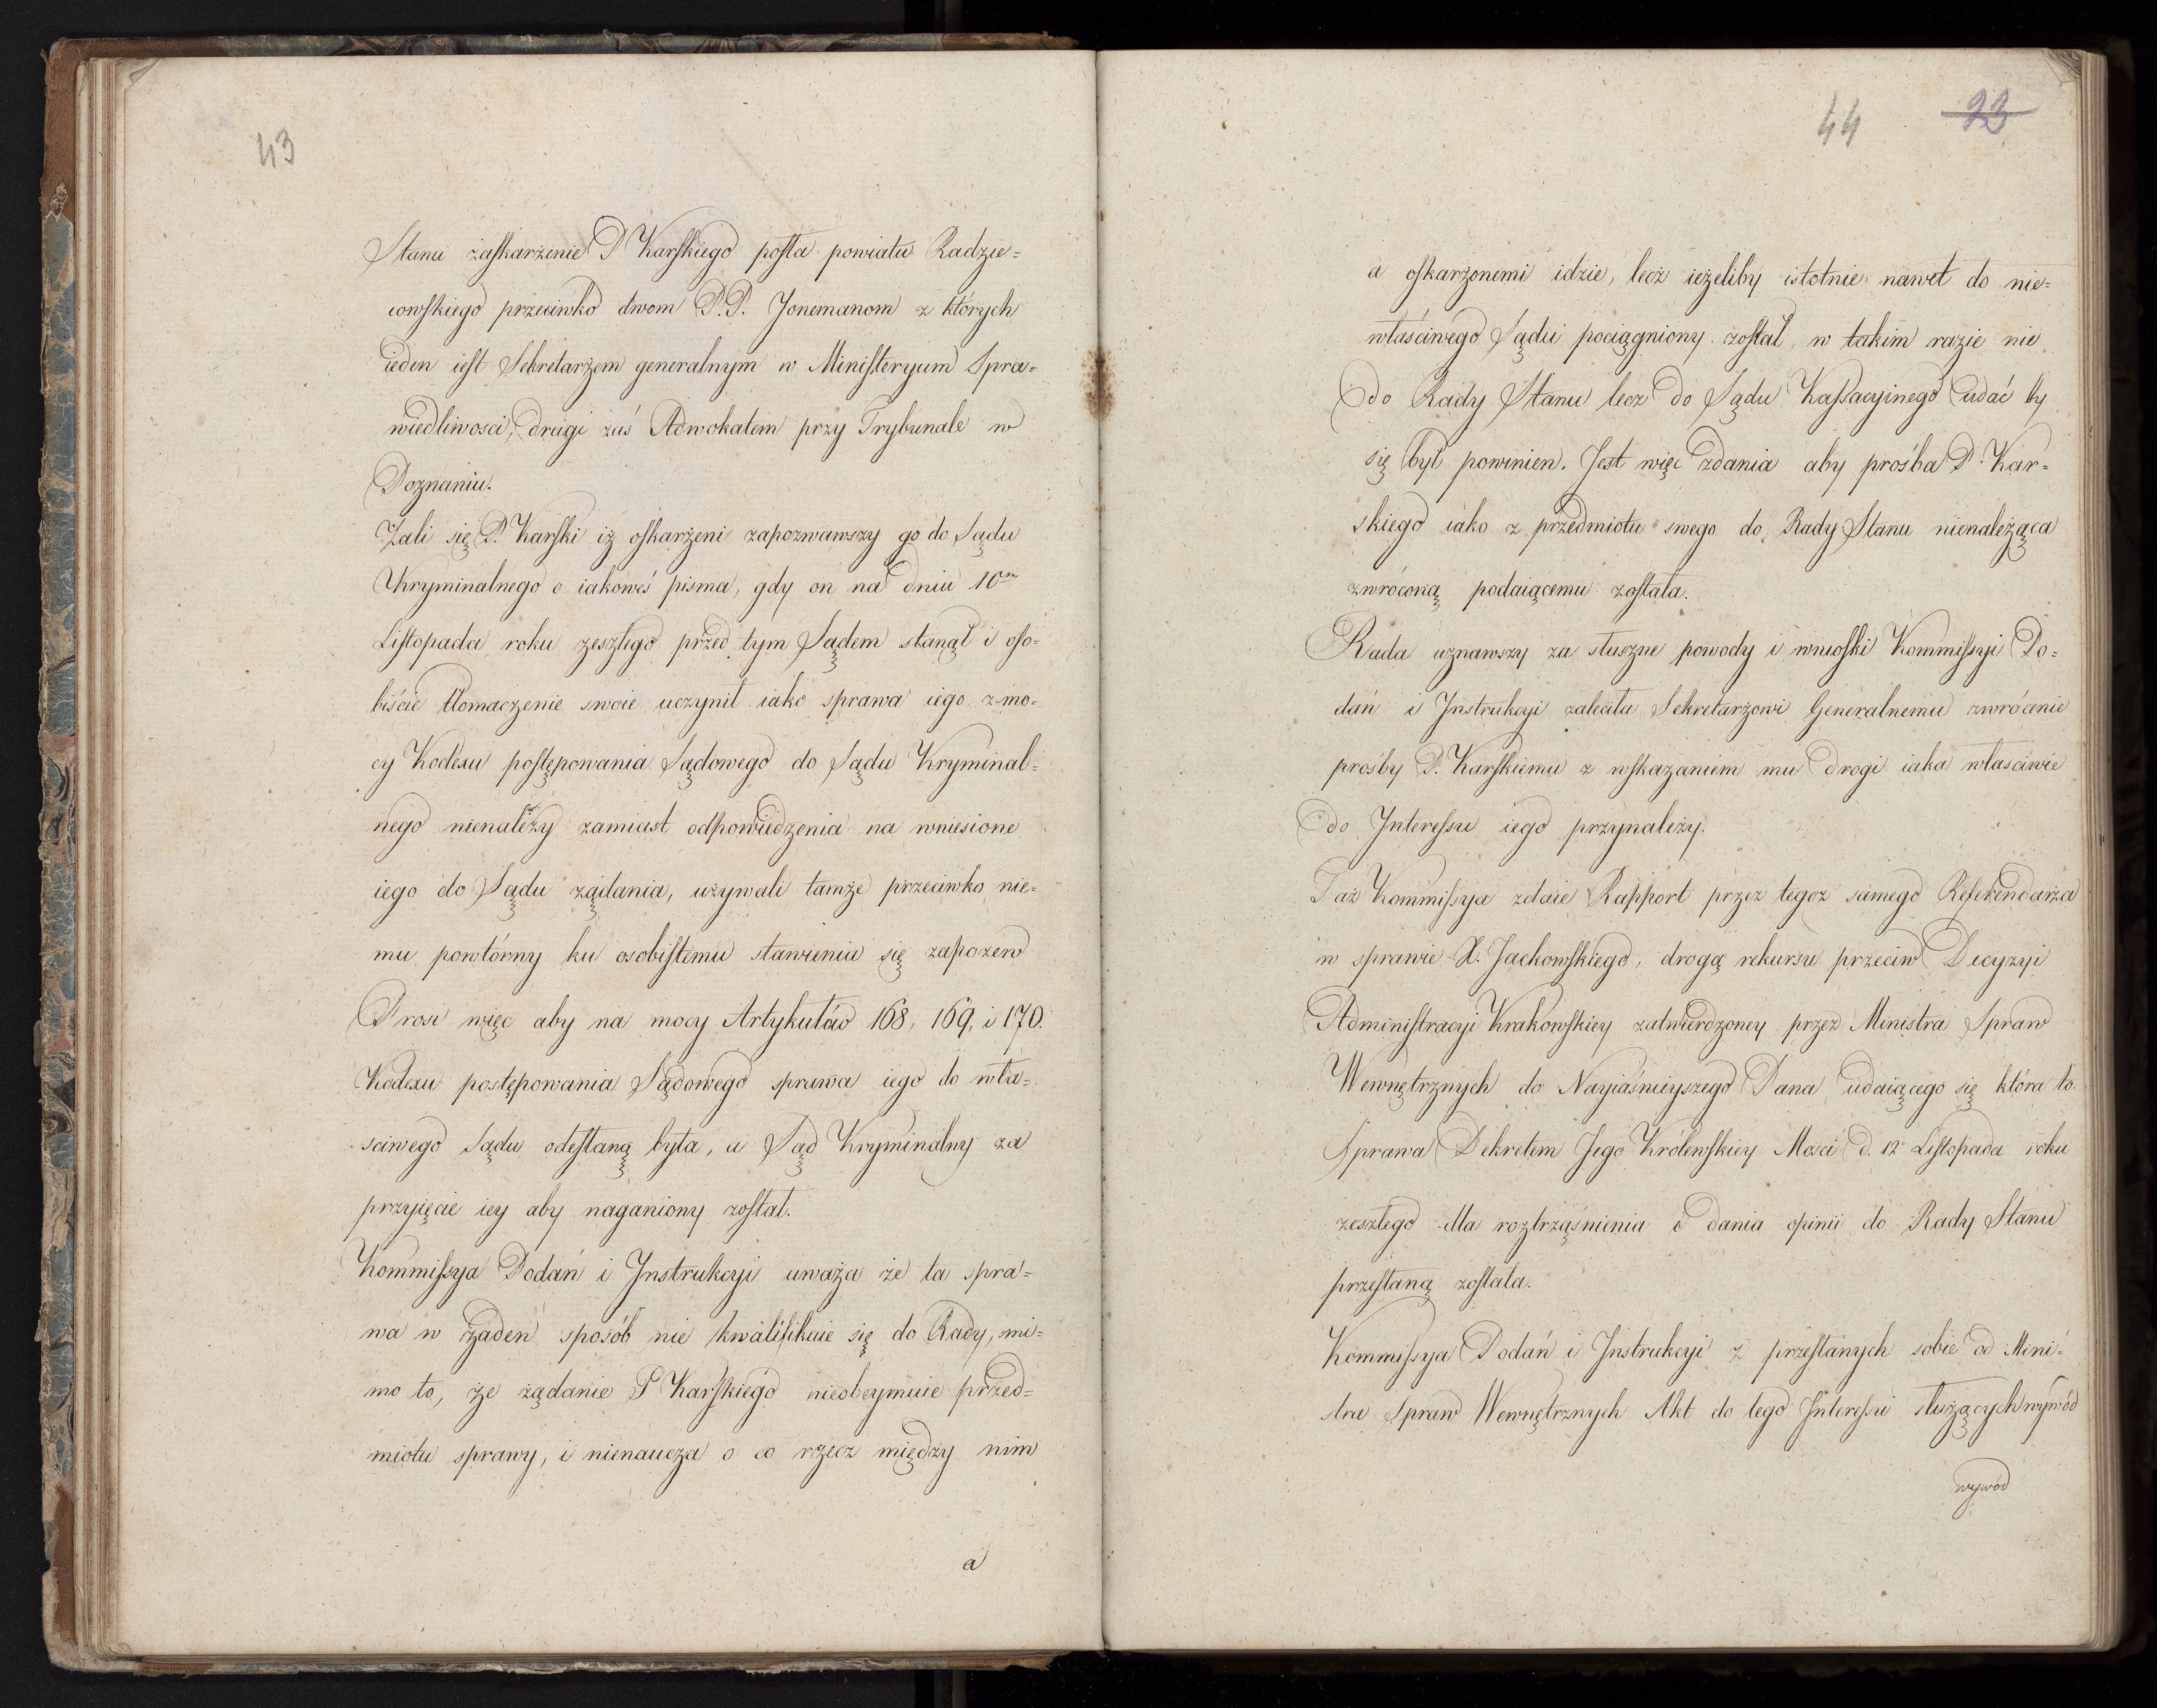 43
Stanu zaskarżenie P Karskiego posła powiatu Radzie=
iowskiego przeciwko dwom P.P. Jonemanom z których
ieden iest Sekretarzem generalnym w Ministeryum Spra=
wiedliwosci, drugi zaś Adwokatem przy Trybunale w
Poznaniu.
Żali się P. Karski iż oskarżeni zapozwawszy go do Sądu
Kryminalnego o iakoweś pisma, gdy on na dniu 10m
Listopada roku zeszłego przed tym Sądem stanął i oso=
biście tłomaczenie swoie uczynił iako sprawa iego z mo=
cy Kodexu postępowania Sądowego do Sądu Kryminal=
nego nienależy zamiast odpowiedzenia na wniesione
iego do Sądu żądania, używali tamże przeciwko nie=
mu powtórny ku osobistemu stawieniu się zapozew
Prosi więc aby na mocy Artykułów 168, 169, i 170.
Kodexu postępowania Sądowego sprawa iego do wła=
sciwego Sądu odesłaną była, a Sąd Kryminalny za
przyięcie iey aby naganiony został.
Kommissya Podań i Instrukcyi uważa że ta spra=
wa w żaden sposób nie kwalifikuie się do Rady, mi=
mo to, że żądanie P Karskiego nieobeymuie przed=
miotu sprawy, i nienaucza o co rzecz między nim
a
44 23
a oskarżonemi idzie, lecz ieżeliby istotnie nawet do nie=
właściwego Sądu pociągniony został, w takim razie nie
do Rady Stanu lecz do Sądu Kassacyinego udać by
się był powinien. Jest więc zdania aby prośba P. Kar=
skiego iako z przedmiotu swego do Rady Stanu nienależąca
zwróconą podaiącemu została.
Rada uznawszy za słuszne powody i wnioski Kommissyi Po=
dań i Instrukcyi zaleciła Sekretarzowi Generalnemu zwrócenie
prośby P. Karskiemu z wskazaniem mu drogi iaka własciwie
do Interessu iego przynależy.
Taż Kommissya zdaie Rapport przez tegoż samego Referendarza
w sprawie X. Jackowskiego, drogą rekursu przeciw Decyzyi
Administracyi Krakowskiey zatwierdzoney przez Ministra Spraw
Wewnętrznych do Nayiaśnieyszego Pana udaiącego się która to
Sprawa Dekretem Jego Królewskiey Mości d. 12 Listopada roku
zeszłego dla roztrząśnienia i dania opinii do Rady Stanu
przesłaną została.
Kommissya Podań i Instrukcyi z przesłanych sobie od Mini=
stra Spraw Wewnętrznych Akt do tego Interessu służących wywód
wywód